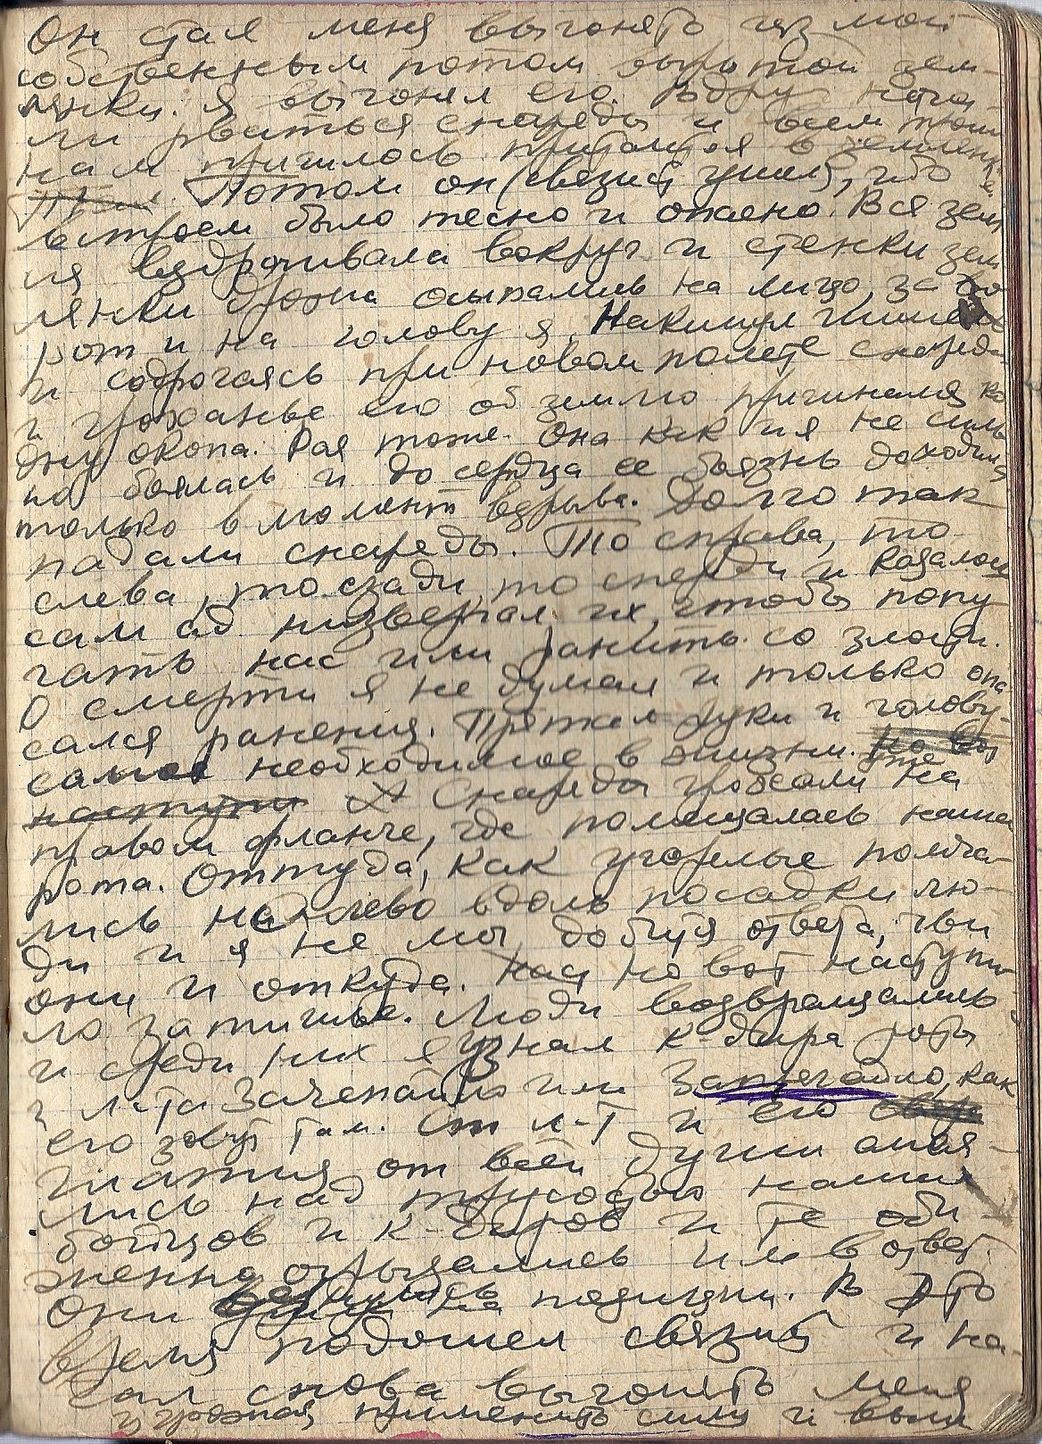 Он стал меня выгонять из мой
собственным потом вырытой зем-
лянки. Я выгонял его. Вдруг нача-
ли рваться снаряды и всем троим
нам пришлось прятаться в землянк
е. Потом он (связной ушел), ибо
втроем было тесно и опасно. Вся зем
ля вздрагивала вокруг и стенки зем
лянки дрожа осыпались на лицо, за во
рот и на голову я. Накинул шинель
и содрогаясь при новом полете снаряда
и громханье его об землю прижимался ко
дну окопа. Рая тоже. Она как и я не силь
но боялась и до сердца ее боязнь доходила
только в момент взрыва. Долго так
падали снаряды. То справа, то
слева, то сзади, то спереди и казалось
сам ад низвергал их, чтобы попу
гать нас или ранить со злости.
О смерти я не думал и только опа
сался ранения. Прятал руки и голову -
самое необходимое в жизни. Но вот
наступи Снаряды уже громхали на
правом фланге, где помещалась наша
рота. Оттуда, как угорелые помча-
лись налево вдоль посадки лю-
ди и я не мог добится ответа, чьи
они и откуда. Но вот наступи
ло затишье. Люди возвращались
и среди них я узнал к-дира роты
л-та или Запрегайло, как
его зовут там. Ст л-т и его
от всей души смея-
лись над трусостью наших
бойцов и к-диров и те оби-
женно огрызались им в ответ.
Они вернулись на позиции. В это
время подошел связной и на-
чал снова выгонять меня
угрожая применить силу и выки